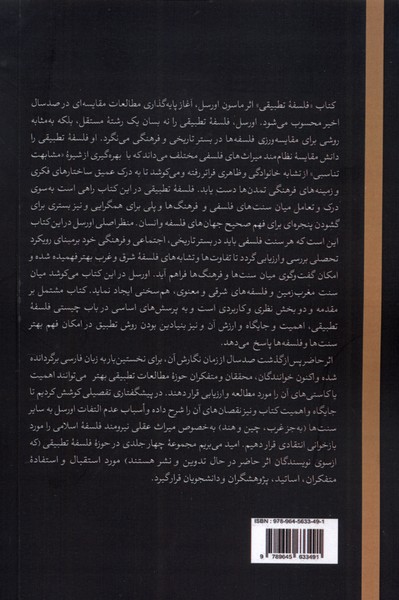 کتاب «فلسفهٔ تطبیقی» اثر ماسون اورسل، آغاز پایه‌گذاری مطالعات مقایسه‌ای در صد سال
اخیر محسوب می‌شود. اورسل، فلسفهٔ تطبیقی را نه بسان یک رشتهٔ مستقل، بلکه به‌مثابه
روشی برای مقایسه‌ورزی فلسفه‌ها در بستر تاریخی و فرهنگی می‌نگرد. او فلسفهٔ تطبیقی را
دانش مقایسهٔ نظام‌مند میراث‌های فلسفی مختلف می‌داند که با بهره‌گیری از شیوهٔ «مشابهت
تناسبی» از تشابه خانوادگی و ظاهری فراتر رفته و می‌کوشد تا به درک عمیق ساختارهای فکری
و زمینه‌های فرهنگی تمدن‌ها دست یابد. فلسفهٔ تطبیقی در این کتاب راهی است به‌سوی
درک و تعامل میان سنت‌های فلسفی و فرهنگ‌ها و پلی برای همگرایی و نیز بستری برای
گشودن پنجره‌ای برای فهم صحیح جهان‌های فلسفه و انسان. منظر اصلی اورسل در این کتاب
این است که هر سنت فلسفی باید در بستر تاریخی، اجتماعی و فرهنگی خود بر مبنای رویکرد
تحصلی بررسی و ارزیابی گردد تا تفاوت‌ها و تشابه‌های فلسفهٔ شرق و غرب بهتر فهمیده شده و
امکان گفت‌وگوی میان سنت‌ها و فرهنگ‌ها فراهم آید. اورسل در این کتاب می‌کوشد میان
سنت مغرب‌زمین و فلسفه‌های شرقی و معنوی، هم‌سخنی ایجاد نماید. کتاب مشتمل بر
مقدمه و دو بخش نظری و کاربردی است و به پرسش‌های اساسی در باب چیستی فلسفهٔ
تطبیقی، اهمیت و جایگاه و ارزش آن و نیز بنیادین بودن روش تطبیق در امکان فهم بهتر
سنت‌ها و فلسفه‌ها پاسخ می‌دهد.
اثر حاضر پس از گذشت صد سال از زمان نگارش آن، برای نخستین بار به زبان فارسی برگردانده
شده و اکنون خوانندگان، محققان و متفکران حوزهٔ مطالعات تطبیقی بهتر می‌توانند اهمیت
یا کاستی‌های آن را مورد مطالعه و ارزیابی قرار دهند. در پیشگفتاری تفصیلی کوشش کردیم تا
جایگاه و اهمیت کتاب و نیز نقصان‌های آن را شرح داده و أسباب عدم التفات اورسل به سایر
سنت‌ها (به‌جز غرب، چین و هند) به‌خصوص میراث عقلی نیرومند فلسفهٔ اسلامی را مورد
بازخوانی انتقادی قرار دهیم. امید می‌بریم مجموعهٔ چهار جلدی در حوزهٔ فلسفهٔ تطبیقی (که
ازسوی نویسندگان اثر حاضر در حال تدوین و نشر هستند) مورد استقبال و استفادهٔ
متفکران، اساتید، پژوهشگران و دانشجویان قرار گیرد.
ISBN : 978-964-5633-49-1
9 789645 633491